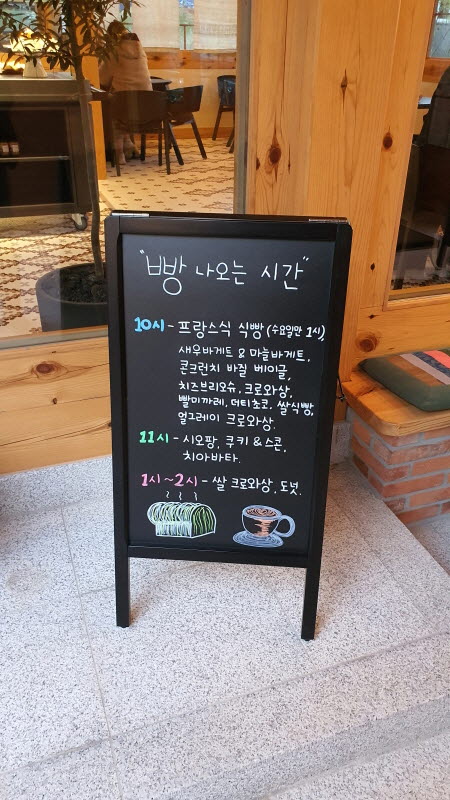 "빵 나오는 시간"
10시 - 프랑스식 식빵 (수요일만 1시),
새우바게트 & 마늘바게트,
콘크런치 바질 베이글,
치즈브리오슈, 크로와상,
빨미까레, 더티초코, 쌀식빵,
얼그레이 크로와상.
11시 - 시오팡, 쿠키 & 스콘,
치아바타.
1시~2시 - 쌀 크로와상, 도넛.